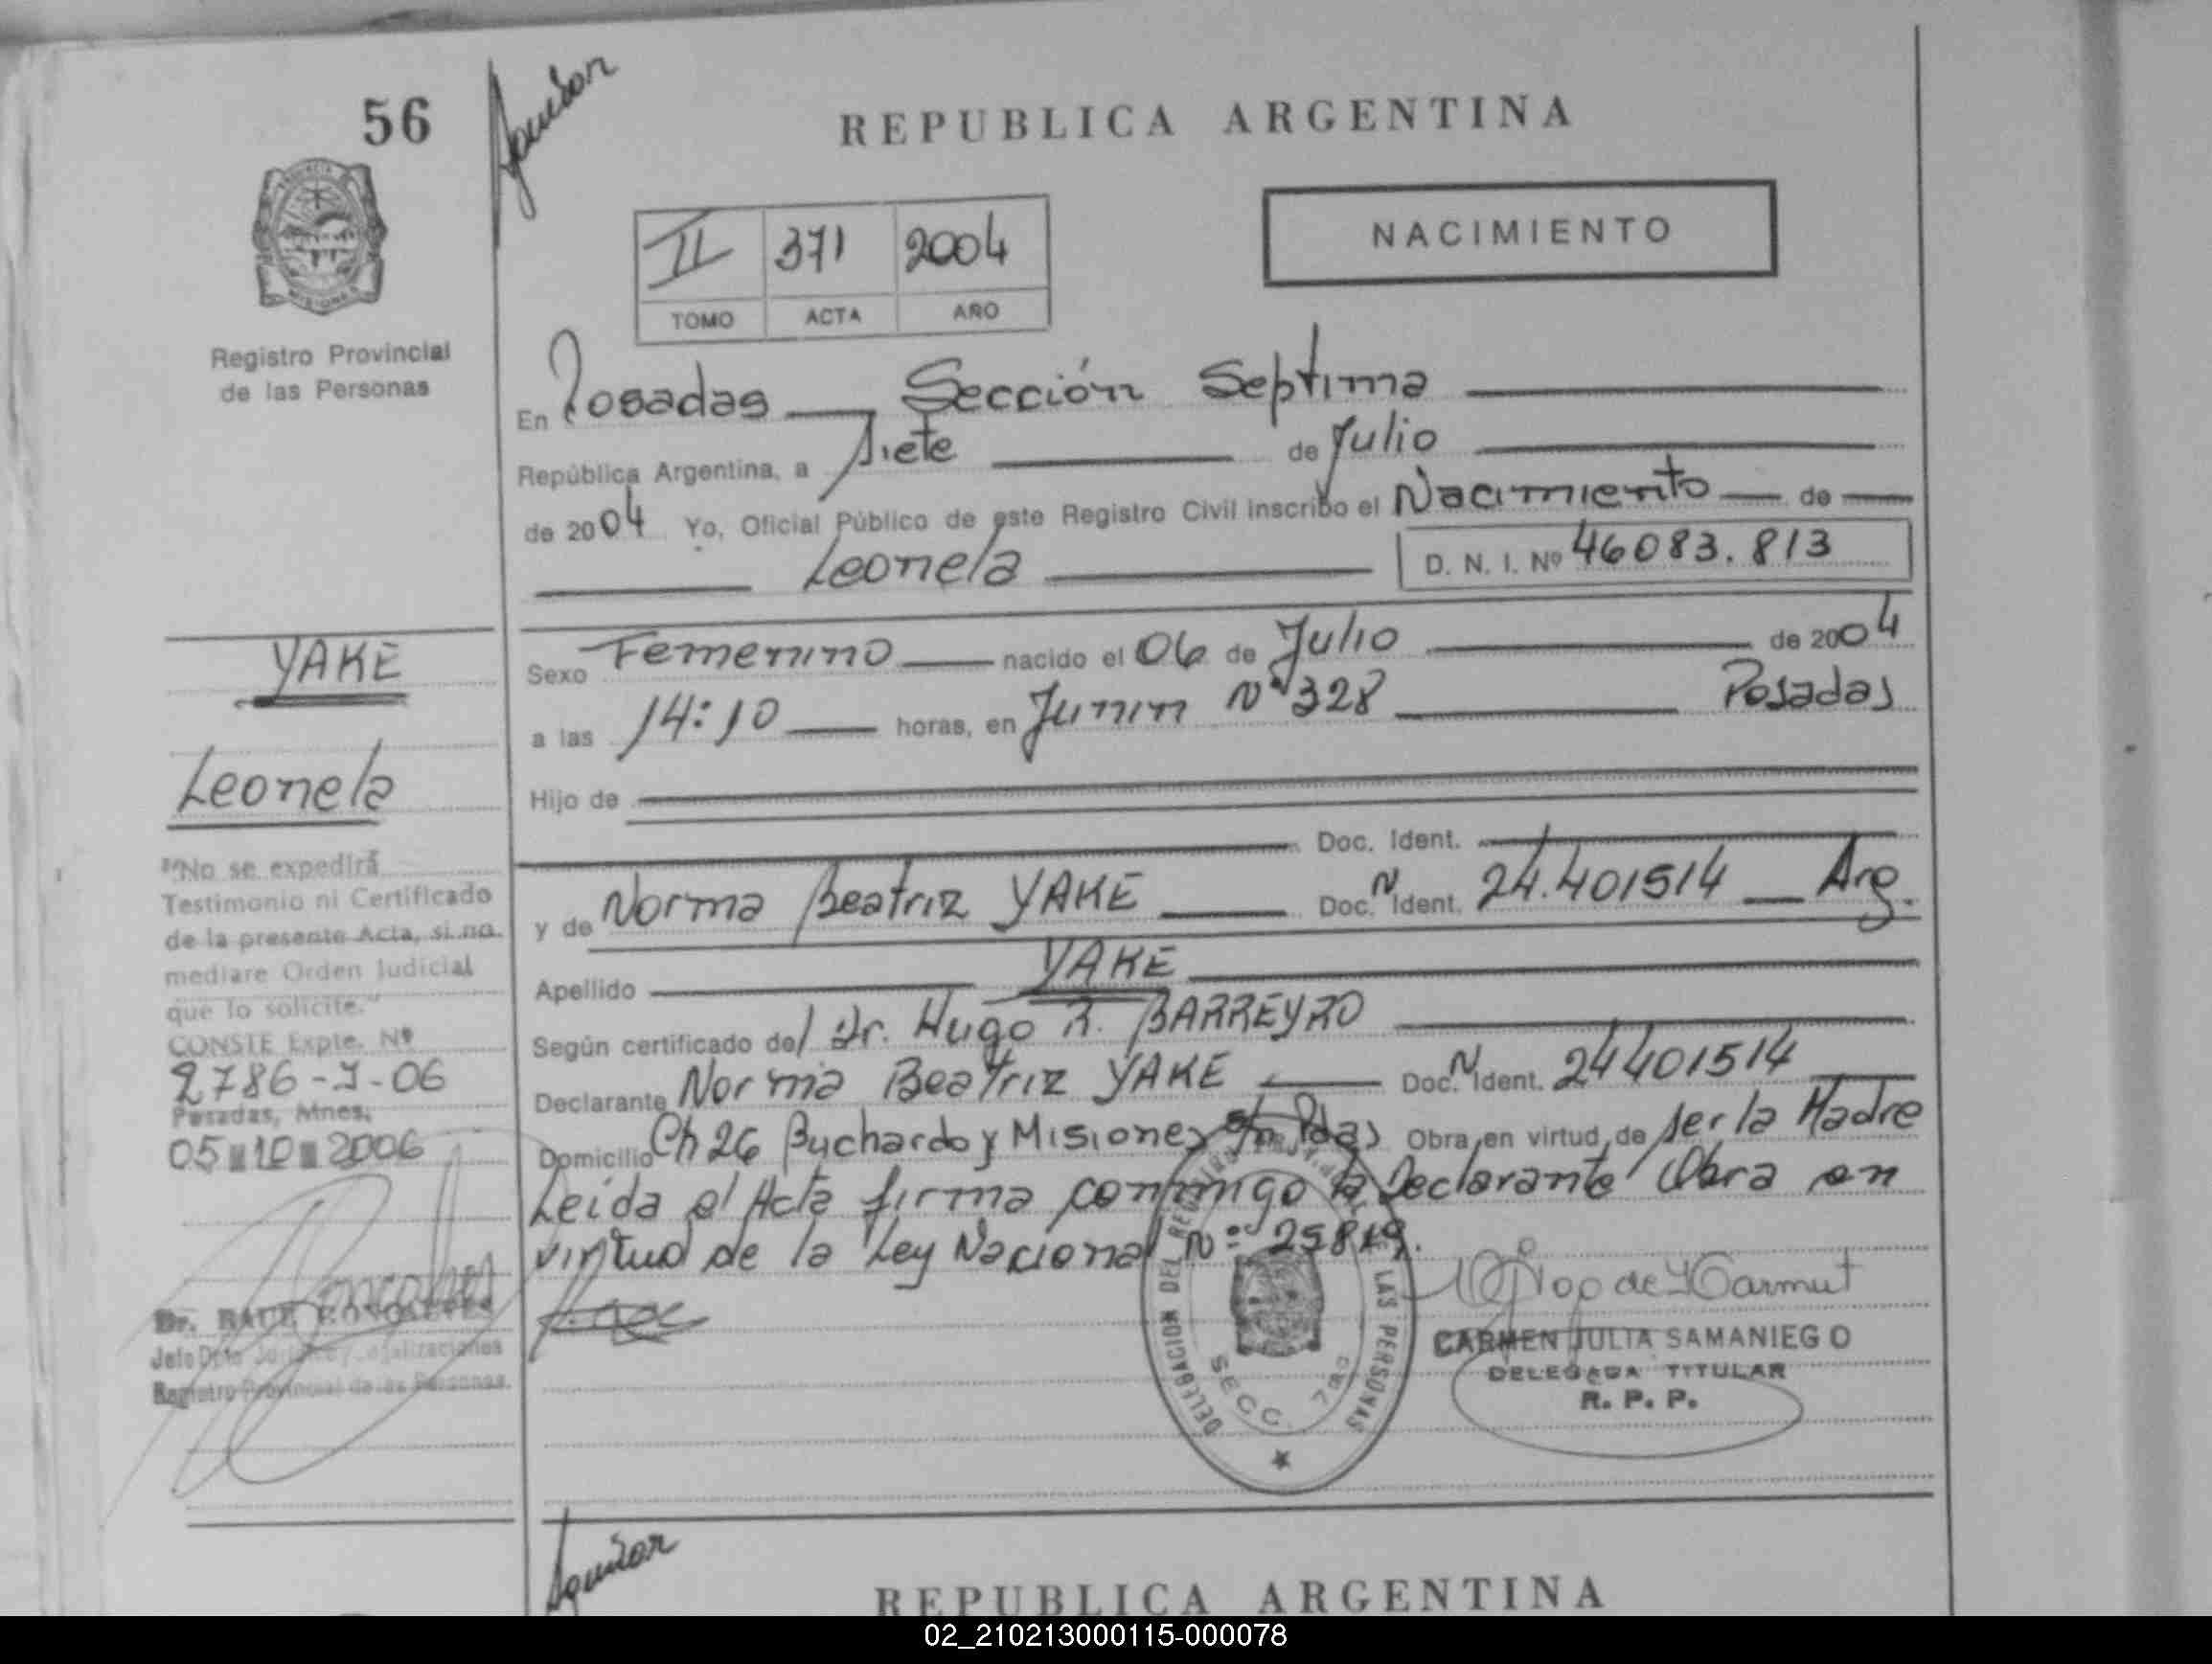 56
Aguilar
REPUBLICA ARGENTINA
PROVINCIA
MISIONES
Registro Provincial
de las Personas
II 371 2004
TOMO ACTA AÑO
NACIMIENTO
En Posadas Sección Septima
República Argentina, a Siete de Julio
de 2004 Yo, Oficial Público de este Registro Civil inscribo el Nacimiento de
Leonela D. N. I. Nº 46083.813
Sexo Femenino nacido el 06 de Julio de 2004
a las 14:10 horas, en Junin Nº 328 Posadas
Hijo de
Doc. Ident.
y de Norma Beatriz YAKE Doc. N Ident. 24.401514 Arg.
Apellido YAKE
Según certificado del Dr. Hugo R. BARREYRO
Declarante Norma Beatriz YAKE Doc. N Ident. 24401514
Domicilio Ch 26 Buchardo y Misiones s/n Pdas Obra en virtud de ser la Madre
Leida el Acta firma conmigo la Declarante Obra en
virtud de la Ley Nacional Nº 25819.
YAKE
Leonela
"No se expedirá
Testimonio ni Certificado
de la presente Acta, si no
mediare Orden Judicial
que lo solicite."
CONSTE Expte. Nº
2786-J-06
Posadas, Mnes.
05 10 2006
Dr. RAUL GONCALVES
Jefe Dpto Jurídico y Legalizaciones
Registro Provincial de las Personas
DELEGACION DEL REGISTRO PROV. DE LAS PERSONAS
SECC. 7ma
CARMEN JULIA SAMANIEGO
DELEGADA TITULAR
R. P. P.
Aguilar
REPUBLICA ARGENTINA
02_210213000115-000078